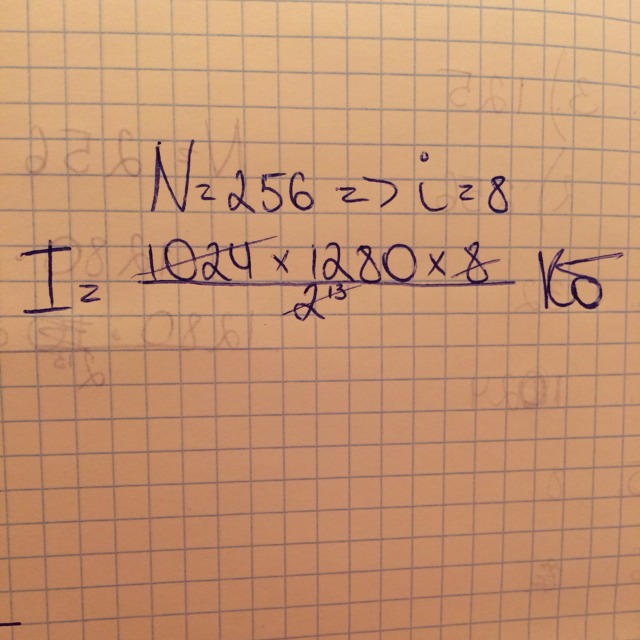 N=256 => i=8
I= 1024 x 1280 x 8 / 2¹³ Кб